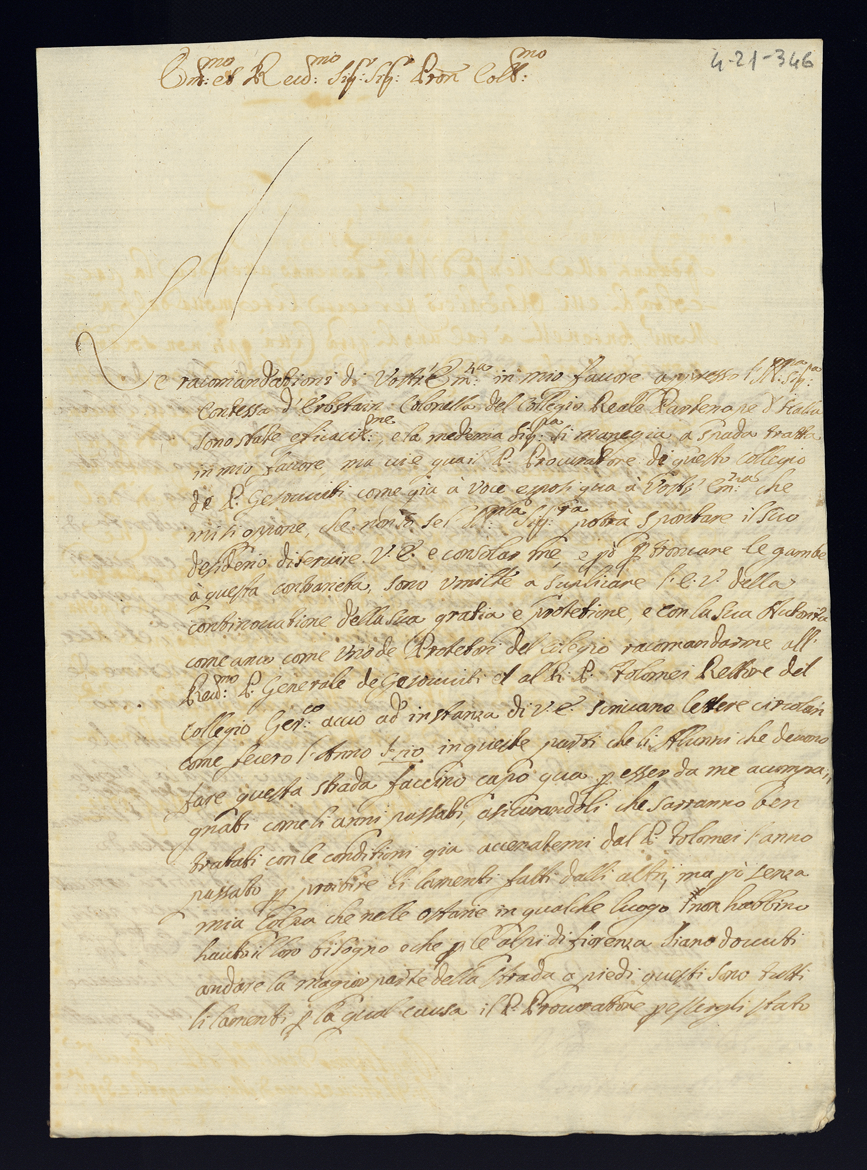 4-21-346
Em:mo et Reud:mo Sig:r Sig:r Pron Coll:mo
Le racomandationi di Vostr'Em:za in mio fauore apresso l'Ill:ma Sig:ra
Contessa d' Colonella del Collegio Reale d'Italia
sono state eficacis:me, e la medema Sig:ra si manegia a spada tratta
in mio fauore ma ui è qua il P. Procuratore di questo Collegio
de P. Gesouuiti come già à Voce esposi qua à Vostr' Em:nza che
mi si oppone, che non so se l'Ill:ma Sig:ria potrà spontare il suo
desiderio di seruire V. E. e consolar me, e p troncare le gambe
a questa contrarieta, sono umil:te a suplicare l'E. V. della
continouatione della sua gratia e protetione, e con la sua Autorità
come anco come uno de Protetori del Colegio racomandarme all
Reud:mo P. Generale de Gesouuiti et al R. P. Tolomei Rettore del
Collegio Ger:co acciò ad instanza di V. E. scriuano lettere circolari
come fecero l'Anno in queste parti che li Alunni che deuono
fare questa strada faccino capo qua p esser da me acompa,,
gnati come li anni passati, asicurandoli che sarranno ben
tratati con le conditioni già accenatemi dal P. Tolomei l'anno
passato p proibire li lamenti fatti dalli altri, ma però senza
mia Colpa che nelle ostarie in qualche luogo non habbino
hauto il loro bisogno o che p le Alpi di fiorenza siano douuti
andare la magior parte della strada a piedi questi sono tutti
li lamenti p la qual causa il P. Procuratore p essergli stato